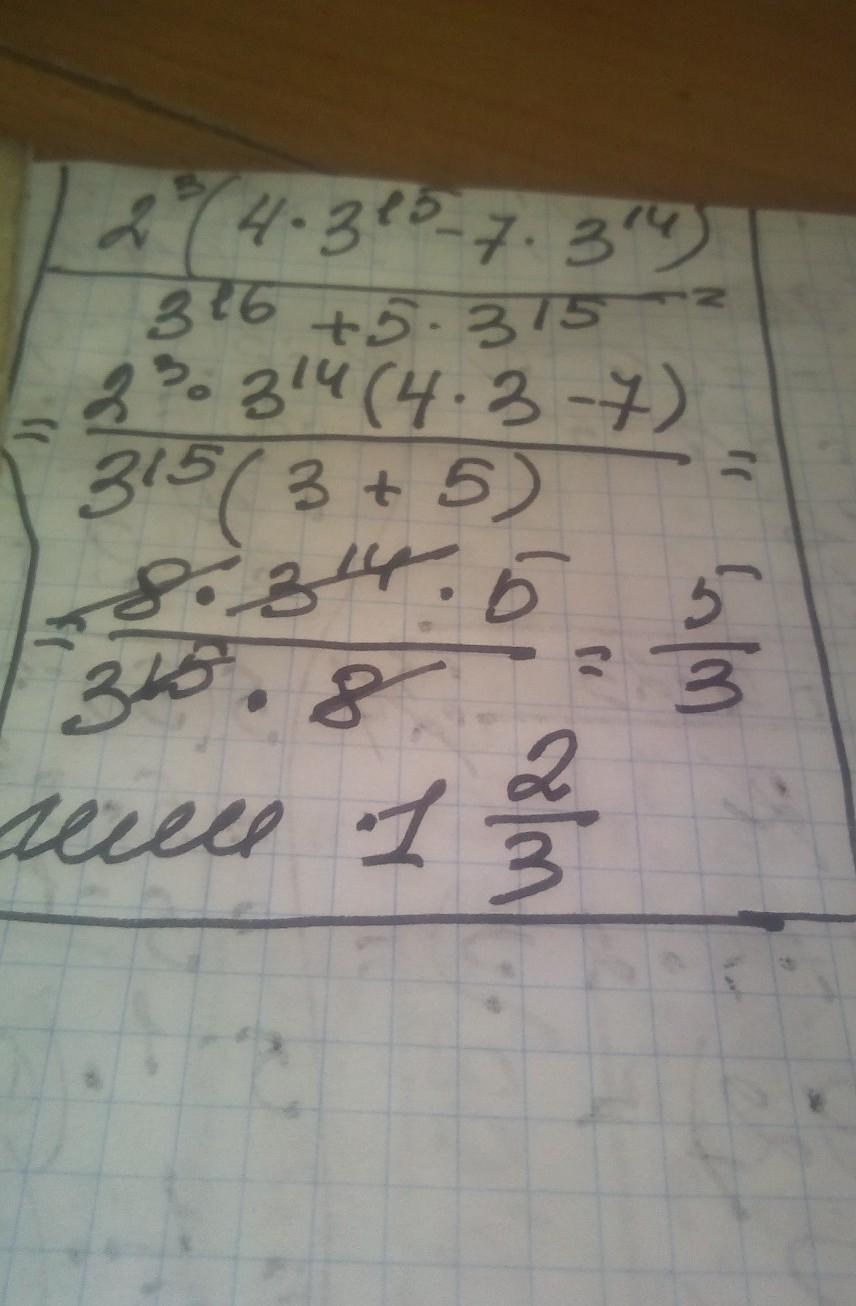 2³(4·3¹⁵-7·3¹⁴)
3¹⁶+5·3¹⁵ =
= 2³·3¹⁴(4·3-7)
3¹⁵(3+5) =
= 8·3¹⁴·5
3¹⁵·8
= 5
3
или 1 2
3